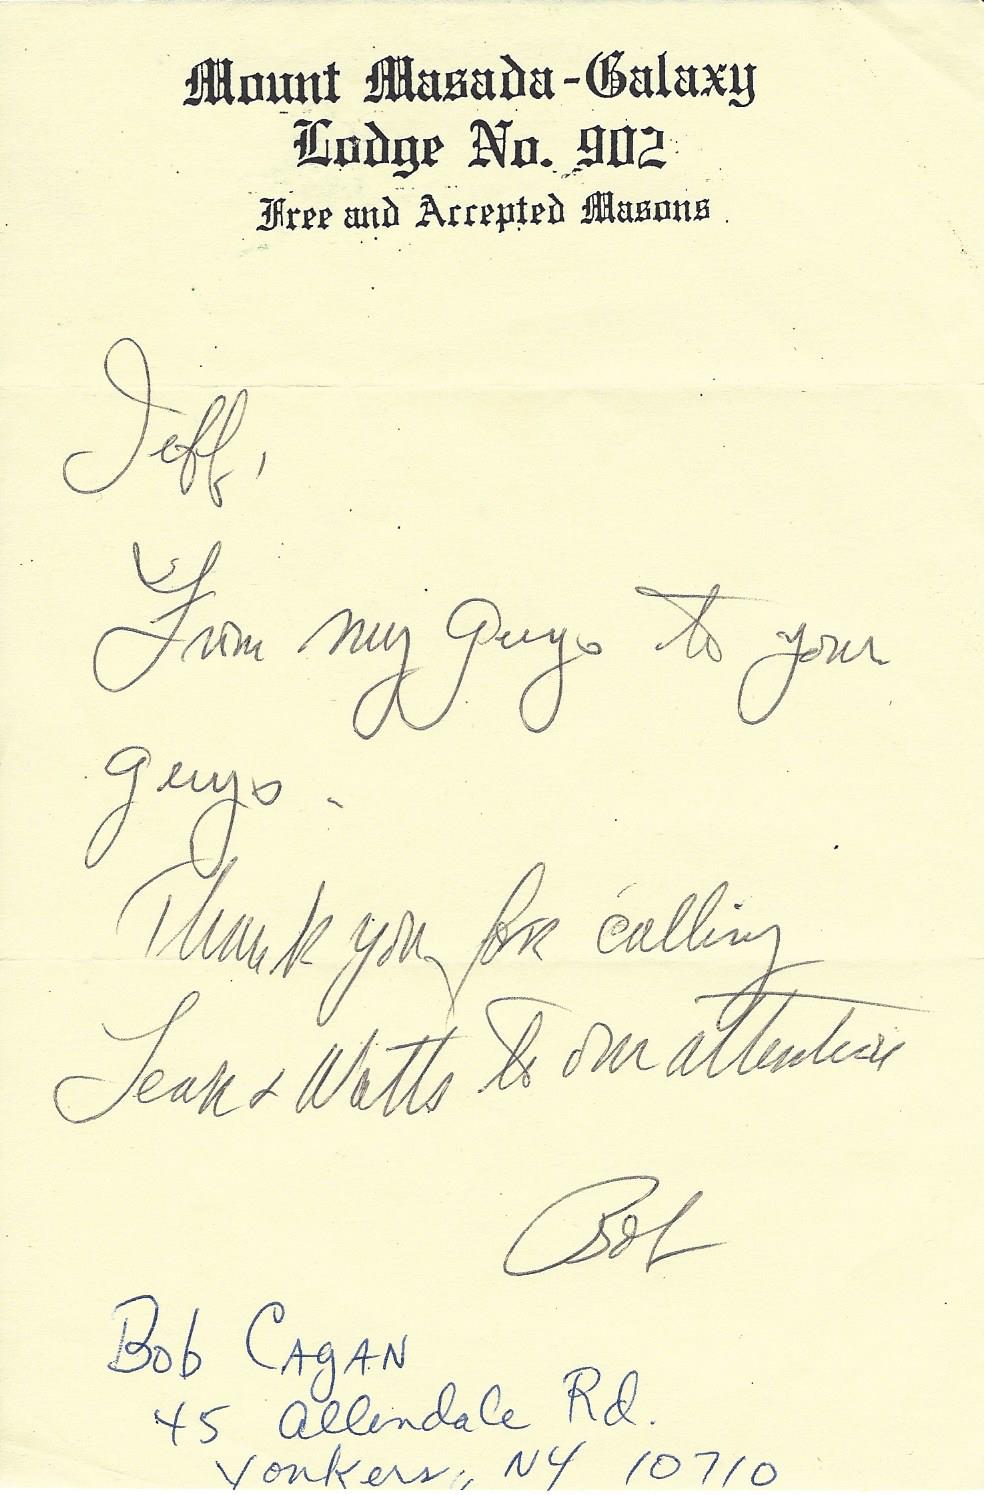 Mount Masada-Galaxy
Lodge No. 902
Free and Accepted Masons
Jeff,
From my guys to your
guys.
Thank you for calling
Leak & Watts to our attention
Bob
Bob Cagan
45 Allendale Rd.
Yonkers, NY 10710